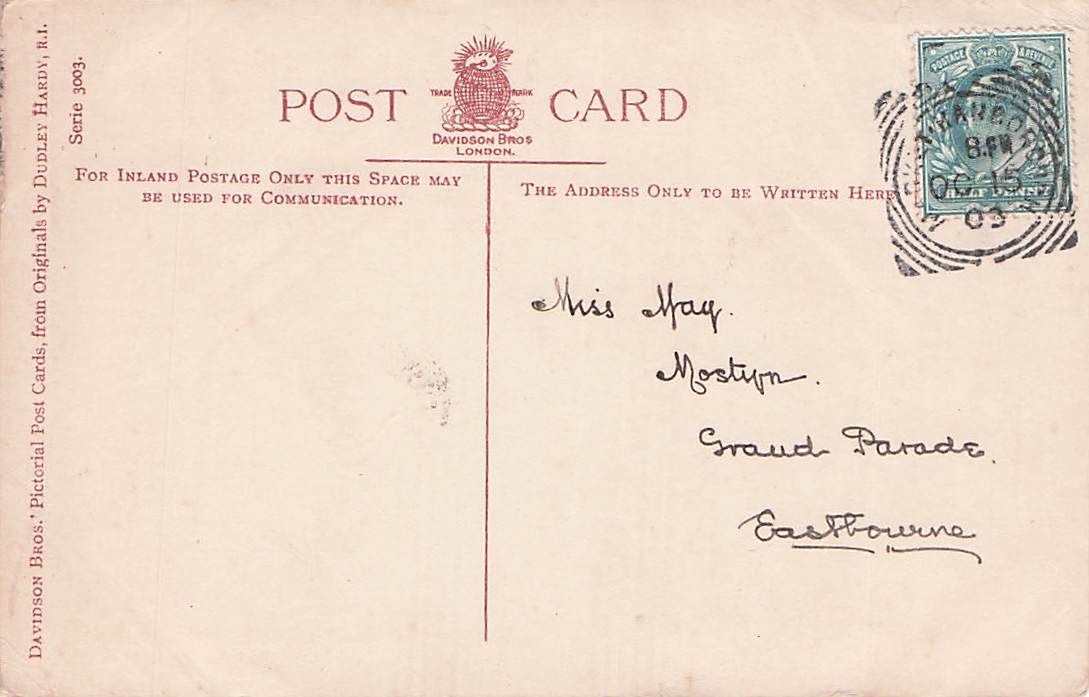 DAVIDSON BROS.' Pictorial Post Cards, from Originals by DUDLEY HARDY, R.I.
Serie 3003.
POST CARD
TRADE MARK
DAVIDSON BROS
LONDON.
FOR INLAND POSTAGE ONLY THIS SPACE MAY
BE USED FOR COMMUNICATION.
THE ADDRESS ONLY TO BE WRITTEN HERE
POSTAGE & REVENUE
8. PM
OC 15
03
Miss May.
Mostyn.
Grand Parade.
Eastbourne